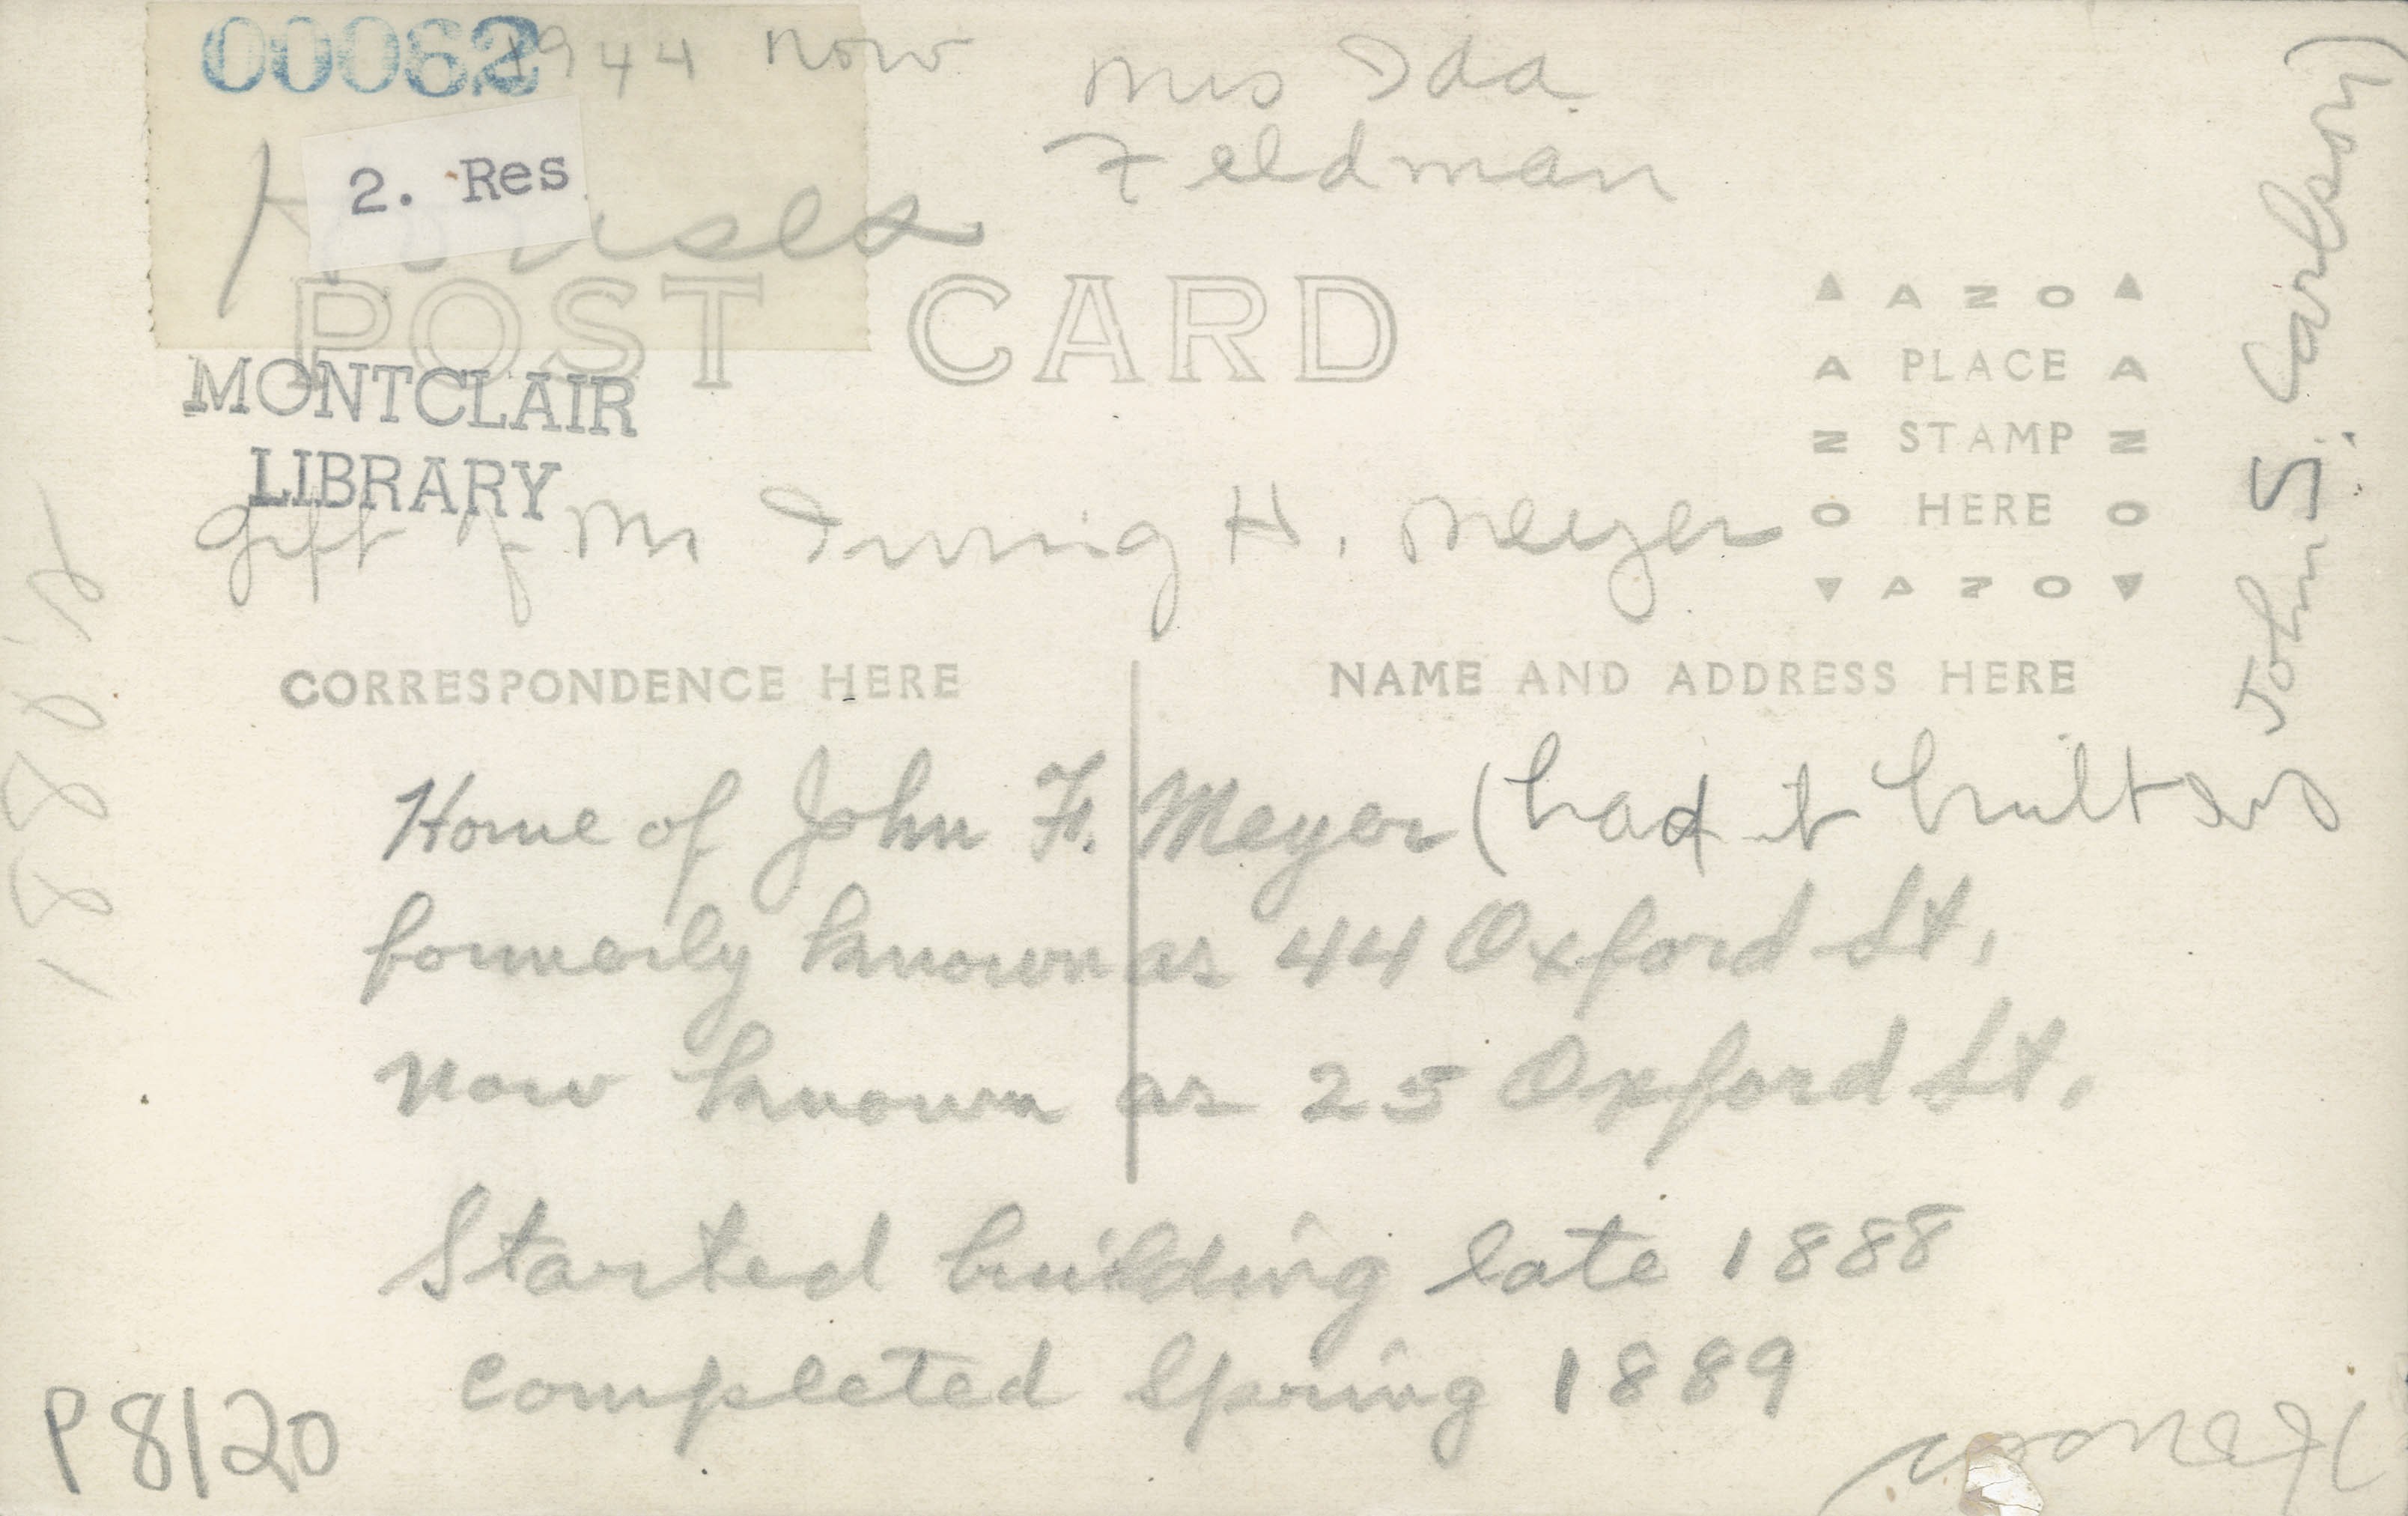 00062
1944 now Mrs Ida
Feldman
2. Res
Houses
POST CARD
MONTCLAIR
LIBRARY
Gift of Mr Irving H. Meyer
▲ A Z O ▲
A PLACE A
Z STAMP Z
O HERE O
▼ A Z O ▼
CORRESPONDENCE HERE
NAME AND ADDRESS HERE
Home of John F. Meyer (had it built by
John S. Carlson)
formerly known as 44 Oxford St.
Now known as 25 Oxford St.
Started building late 1888
completed Spring 1889
1880's
P8120